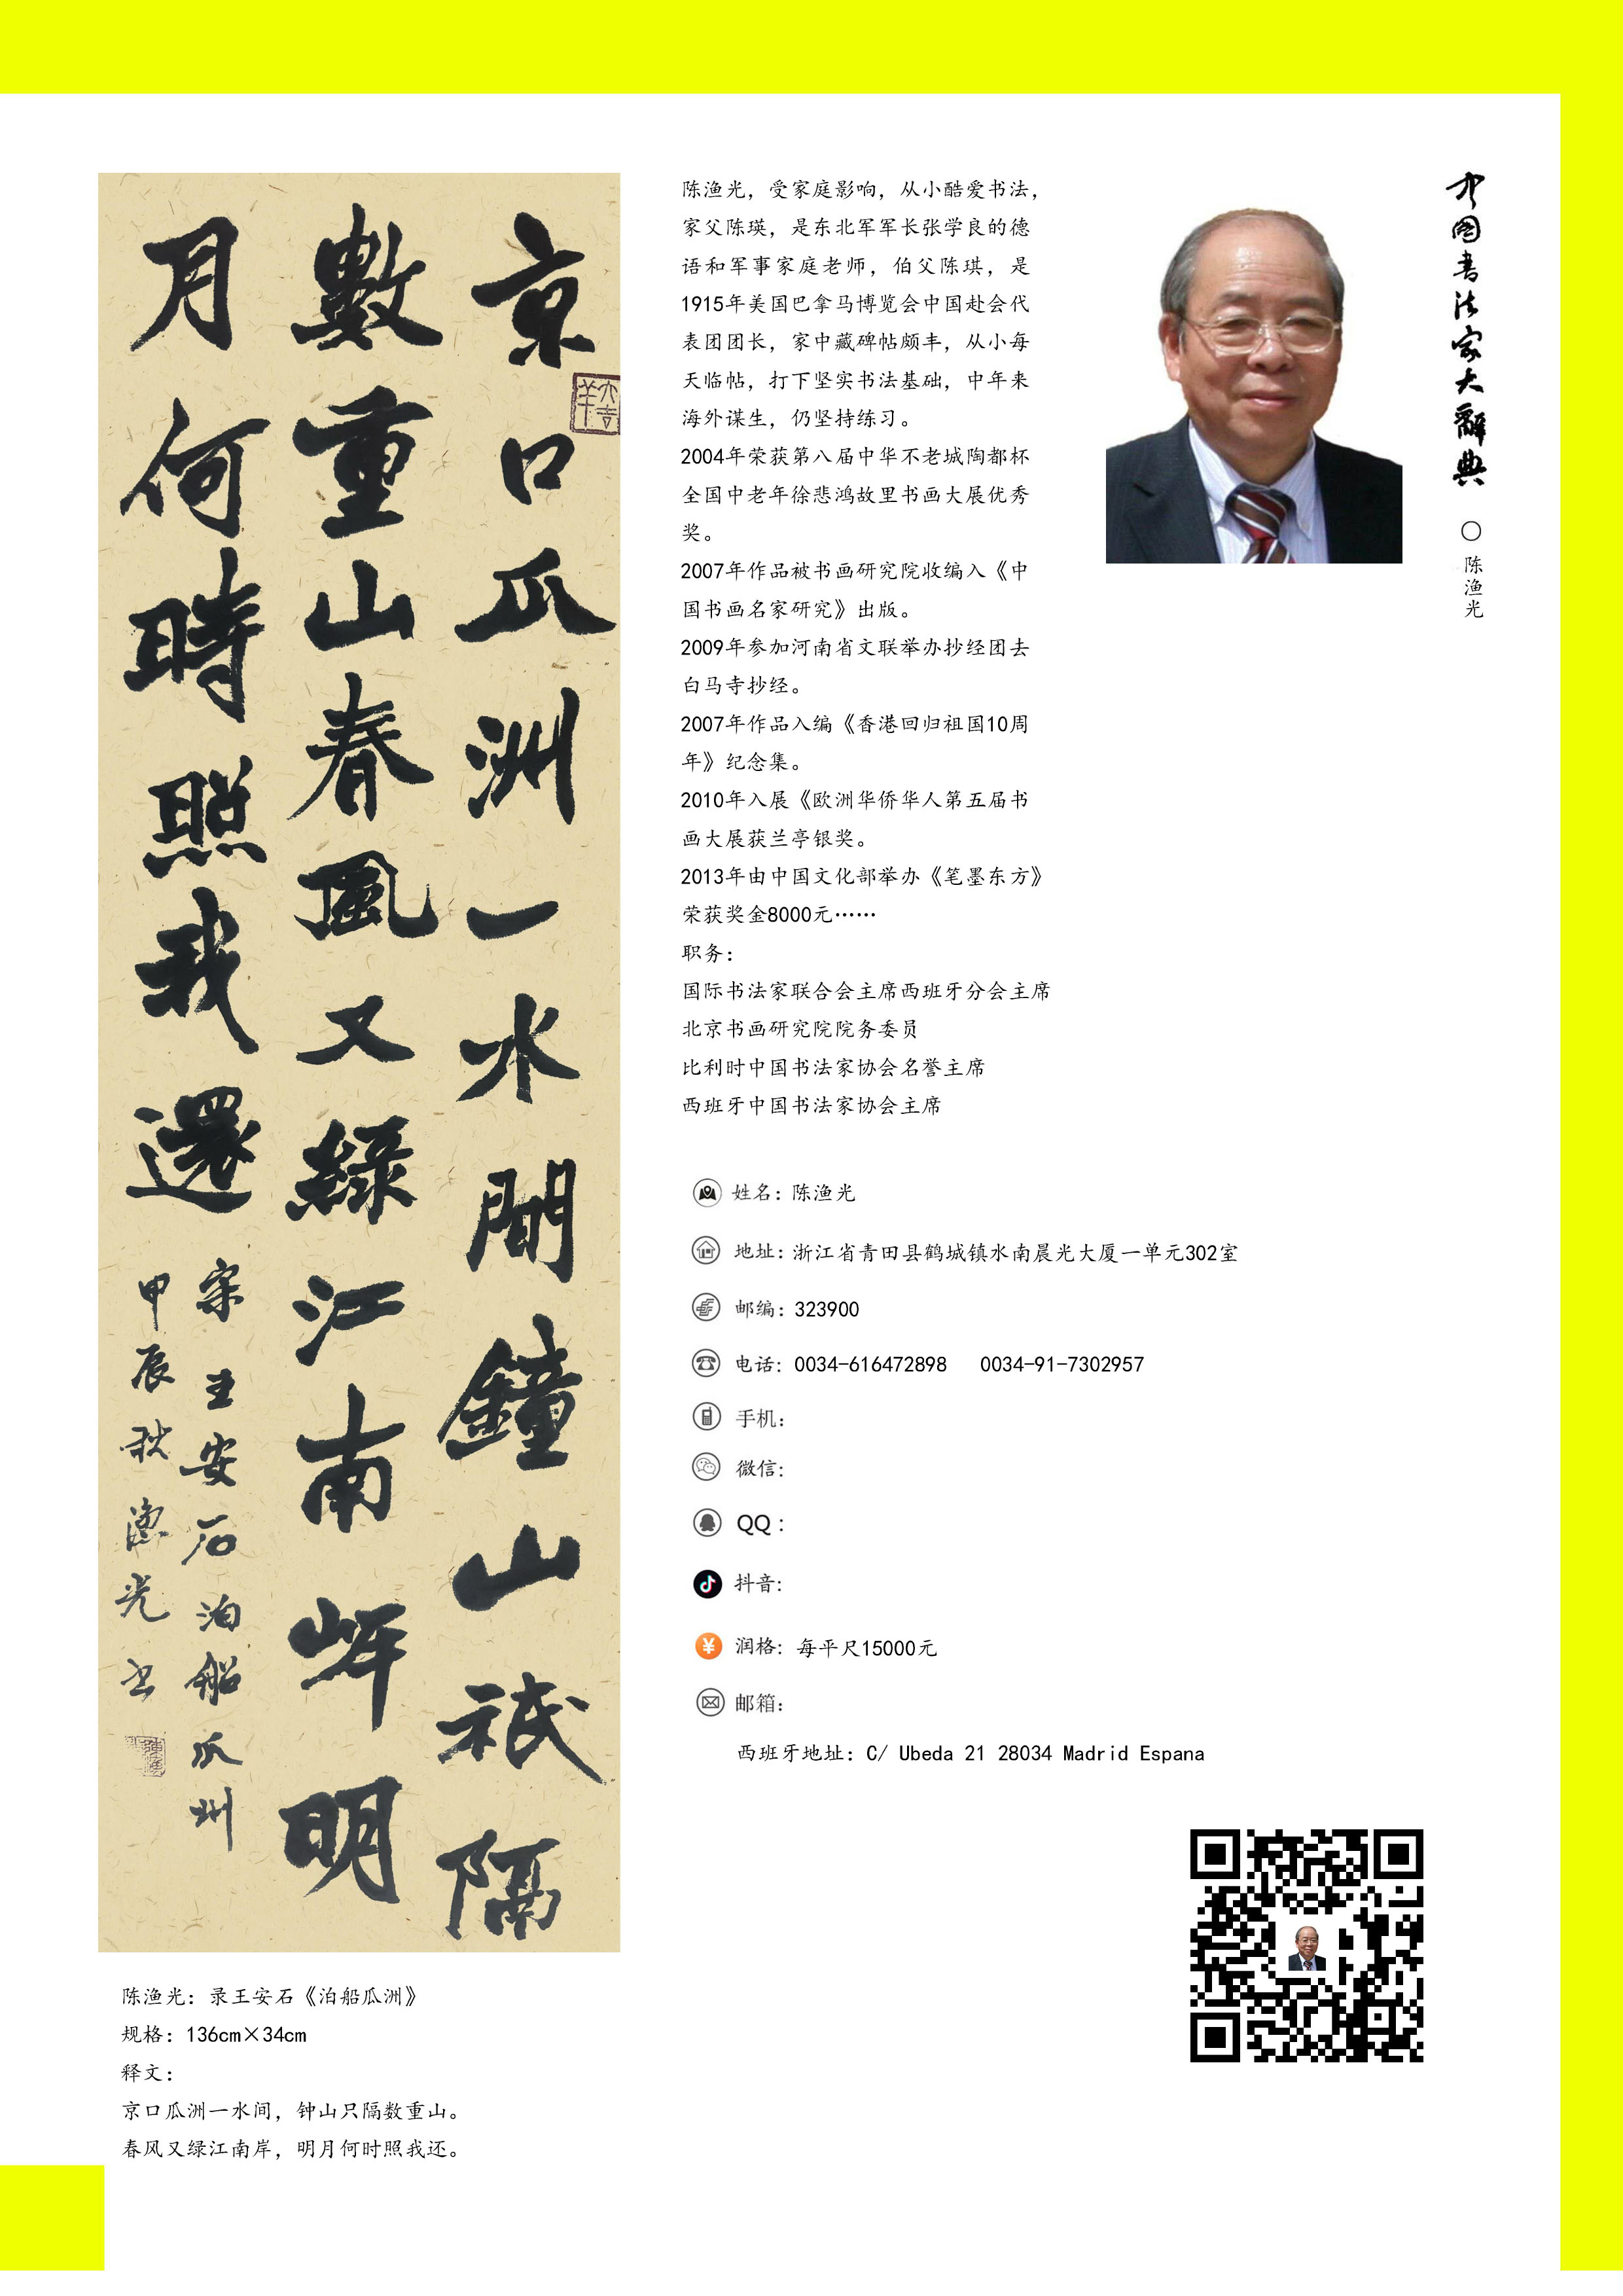 京口瓜洲一水間鐘山祇隔
數重山春風又綠江南岸明
月何時照我還
宋王安石泊船瓜州
甲辰秋漁光书
大吉羊
陈渔光：录王安石《泊船瓜洲》
规格：136cm×34cm
释文：
京口瓜洲一水间，钟山只隔数重山。
春风又绿江南岸，明月何时照我还。
陈渔光，受家庭影响，从小酷爱书法，
家父陈瑛，是东北军军长张学良的德
语和军事家庭老师，伯父陈琪，是
1915年美国巴拿马博览会中国赴会代
表团团长，家中藏碑帖颇丰，从小每
天临帖，打下坚实书法基础，中年来
海外谋生，仍坚持练习。
2004年荣获第八届中华不老城陶都杯
全国中老年徐悲鸿故里书画大展优秀
奖。
2007年作品被书画研究院收编入《中
国书画名家研究》出版。
2009年参加河南省文联举办抄经团去
白马寺抄经。
2007年作品入编《香港回归祖国10周
年》纪念集。
2010年入展《欧洲华侨华人第五届书
画大展获兰亭银奖。
2013年由中国文化部举办《笔墨东方》
荣获奖金8000元……
职务：
国际书法家联合会主席西班牙分会主席
北京书画研究院院务委员
比利时中国书法家协会名誉主席
西班牙中国书法家协会主席
姓名：陈渔光
地址：浙江省青田县鹤城镇水南晨光大厦一单元302室
邮编：323900
电话：0034-616472898 0034-91-7302957
手机：
微信：
QQ：
抖音：
润格：每平尺15000元
邮箱：
西班牙地址：C/ Ubeda 21 28034 Madrid Espana
中国书法家大辞典
○陈渔光